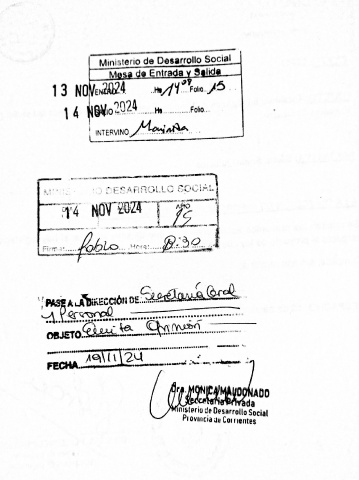 Ministerio de Desarrollo Social
Mesa de Entrada y Salida
13 NOV 2024 Hs 14 08 Folio 15
14 NOV 2024 Hs Folio
INTERVINO
MINISTERIO DESARROLLO SOCIAL
14 NOV 2024
15
Firma: Pablo Hora: 8:30
PASE A LA DIRECCIÓN DE Secretaría Gral
y Personal
OBJETO Emita Opinión
FECHA 19/11/24
Dra. MONICA MALDONADO
Secretaria Privada
Ministerio de Desarrollo Social
Provincia de Corrientes